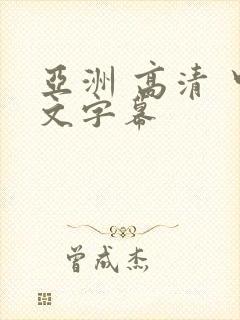 亞洲 高清
文字幕
曾成杰